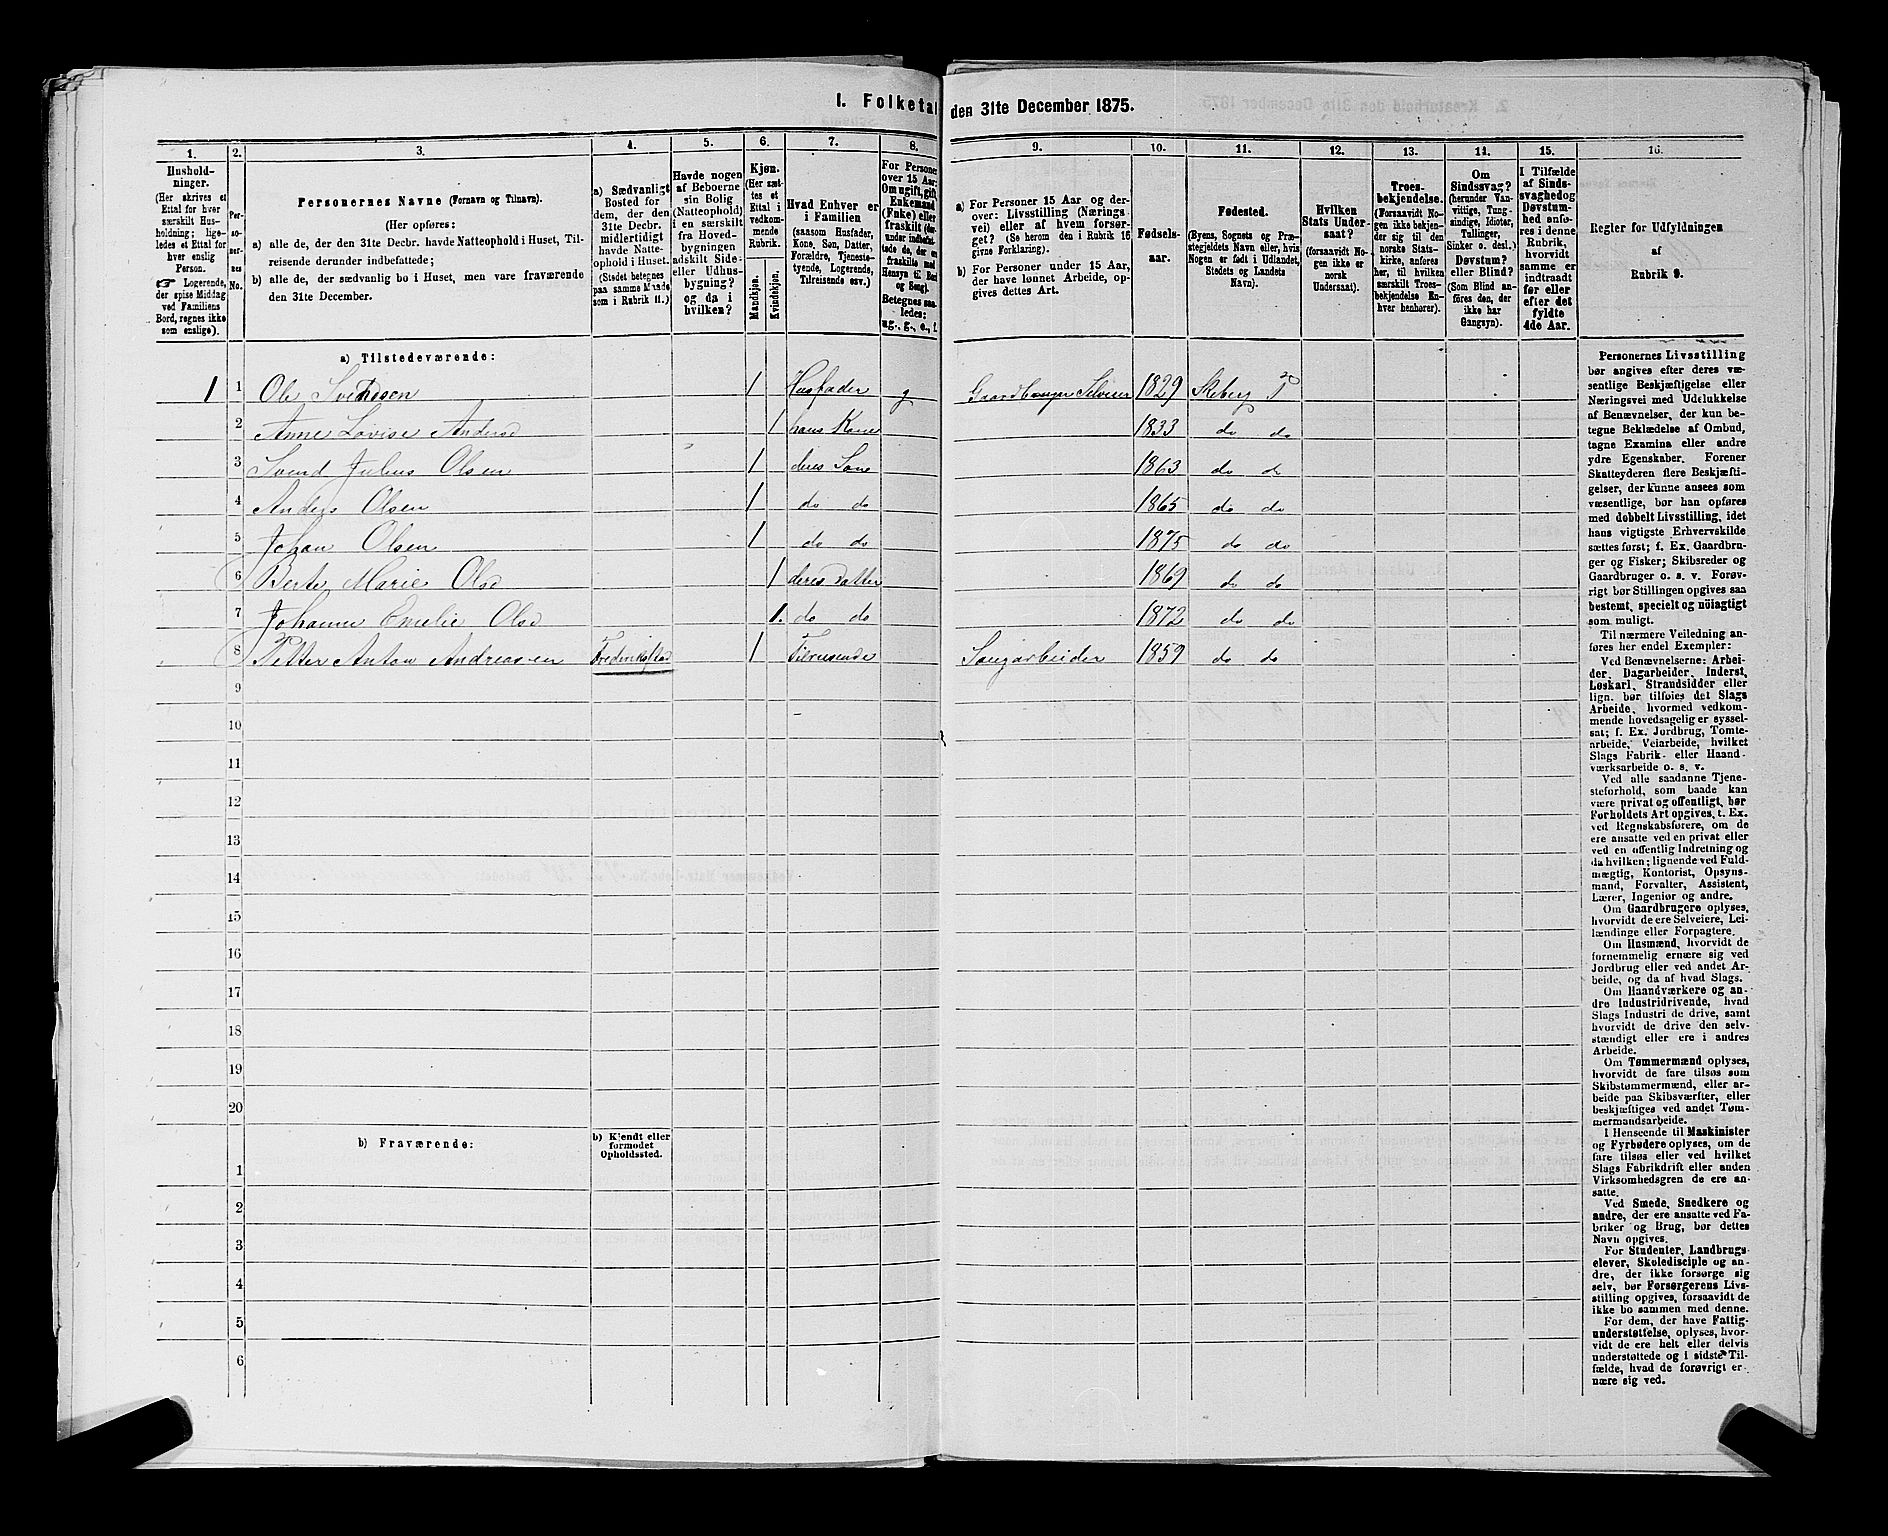 I. Folketal den 31te December 1875.
1. 2. 3. 4. 5. 6. 7. 8. 9. 10. 11. 12. 13. 14. 15. 16.
Husholdninger.
(Her skrives et
Ettal for hver
særskilt Husholdning;
ligeledes et Ettal for
hver enslig
Person.
☛ Logerende,
der spise Middag
ved Familiens
Bord, regnes ikke
som enslige).
Personernes No.
Personernes Navne (Fornavn og Tilnavn).
(Her opføres:
a) alle de, der den 31te Decbr. havde Natteophold i Huset, Tilreisende derunder indbefattede;
b) alle de, der sædvanlig bo i Huset, men vare fraværende
den 31te December.
a) Sædvanligt
Bosted for
dem, der den
31te Decbr.
midlertidigt
havde Natteophold i Huset.
(Stedet betegnes
paa samme Maade
som i Rubrik 11.)
Havde nogen
af Beboerne
sin Bolig
(Natteophold)
i en særskilt
fra Hovedbygningen
adskilt Side-
eller Udhusbygning?
og da i
hvilken?
Kjøn.
(Her sættes et
Ettal i
vedkommende
Rubrik.
Mandkjøn.
Kvindekjøn.
Hvad Enhver er
i Familien
(saasom Husfader,
Kone, Søn, Datter,
Forældre, Tjenestetyende, Logerende,
Tilreisende osv.)
For Personer
over 15 Aar:
Om ugift, gift,
Enkemand
(Enke) eller
fraskilt
Betegnes saaledes:
ug., g., e., f.
a) For Personer 15 Aar og derover: Livsstilling (Næringsvei) eller af hvem forsørget? (Se herom den i Rubrik 16
givne Forklaring).
b) For Personer under 15 Aar,
der have lønnet Arbeide, opgives dettes Art.
Fødselsaar.
Fødested.
(Byens, Sognets og Præstegjeldets Navn eller, hvis
Nogen er født i Udlandet,
Stedets og Landets
Navn).
Hvilken
Stats Undersaat?
(forsaavidt Nogen ikke er
norsk
Undersaat).
Troesbekjendelse.
(Forsaavidt Nogen ikke bekjender sig til den
norske Statskirke, anføres
her, til hvilken
særskilt Troesbekjendelse Enhver henhører).
Om
Sindssvag?
(herunder Vanvittige, Tungsindige, Idioter,
Tullinger,
Sinker o. desl.)
Døvstum?
eller Blind?
(Som Blind anføres den, der
ikke har
Gangsyn).
I Tilfælde
af Sindssvaghed og
Døvstumhed anføres i denne
Rubrik,
hvorvidt
samme er
indtraadt
før eller
efter det
fyldte
4de Aar.
Regler for Udfyldningen
af
Rubrik 9.
a) Tilstedeværende:
1 1 Ole Svendsen 1 Husfader g Gaardbruger Selveier 1829 Skeberg P
2 Anne Lovise Andersd 1 hans Kone 1833 do do
3 Svend Julius Olsen 1 deres Søn 1863 do do
4 Anders Olsen 1 do do 1865 do do
5 Johan Olsen 1 do do 1875 do do
6 Berte Marie Olsd 1 deres Datter 1869 do do
7 Johanne Emelie Olsd 1. do do 1872 do do
8 Petter Anton Andreasen Frederikstad 1 Tilreisende Saugarbeider 1859 do do
9
10
11
12
13
14
15
16
17
18
19
20
b) Fraværende:
b) Kjendt eller
formodet
Opholdssted.
1
2
3
4
5
6
Personernes Livsstilling
bør angives efter deres væsentlige Beskjæftigelse eller
Næringsvei med Udelukkelse
af Benævnelser, der kun betegne Beklædelse af Ombud,
tagne Examina eller andre
ydre Egenskaber. Forener
Skatteyderen flere Beskjæftigelser, der kunne ansees som
væsentlige, bør han opføres
med dobbelt Livsstilling, idet
hans vigtigste Erhvervskilde
sættes først; f. Ex. Gaardbruger og Fisker; Skibsreder og
Gaardbruger o. s. v. Forøvrigt bør Stillingen opgives saa
bestemt, specielt og nöiagtigt
som muligt.
Til nærmere Veiledning anføres her endel Exempler:
Ved Benævnelserne: Arbeider, Dagarbeider, Inderst,
Løskarl, Strandsidder eller
lign. bør tilføies det Slags
Arbeide, hvormed vedkommende hovedsagelig er sysselsat; f. Ex. Jordbrug, Tomtearbeide, Veiarbeide, hvilket
Slags Fabrik- eller Haandværksarbeide o. s. v.
Ved alle saadanne Tjenesteforhold, som baade kan
være privat og offentligt, bør
Forholdets Art opgives, t. Ex.
ved Regnskabsførere, om de
ere ansatte ved en privat eller
ved en offentlig Indretning og
da hvilken; lignende ved Fuldmægtig, Kontorist, Opsynsmand, Forvalter, Assistent,
Lærer, Ingeniør og andre.
Om Gaardbrugere oplyses,
hvorvidt de ere Selveiere, Leilændinge eller Forpagtere.
Om Husmænd, hvorvidt de
fornemmelig ernære sig ved
Jordbrug eller ved andet Arbeide, og da af hvad Slags.
Om Haandværkere og andre Industridrivende, hvad
Slags Industri de drive, samt
hvorvidt de drive den selvstændigt eller ere i andres
Arbeide.
Om Tømmermænd oplyses,
hvorvidt de fare tilsøs som
Skibstømmermænd, eller arbeide paa Skibsværfter, eller
beskjæftiges ved andet Tømmermandsarbeide.
I Henseende til Maskinister
og Fyrbødere oplyses, om de
fare tilsøs eller ved hvilket
Slags Fabrikdrift eller anden
Virksomhedsgren de ere ansatte.
Ved Smede, Snedkere og
andre, der ere ansatte ved Fabriker og Brug, bør dettes
Navn opgives.
For Studenter, Landbrugselever, Skoledisciple og andre, der ikke forsørge sig
selv, bør Forsørgerens Livsstilling opgives, forsaavidt de
ikke bo sammen med denne.
For dem, der have Fattigunderstøttelse, oplyses, hvorvidt de ere helt eller delvis
understøttede og i sidste Tilfælde, hvad de forøvrigt ernære sig ved.